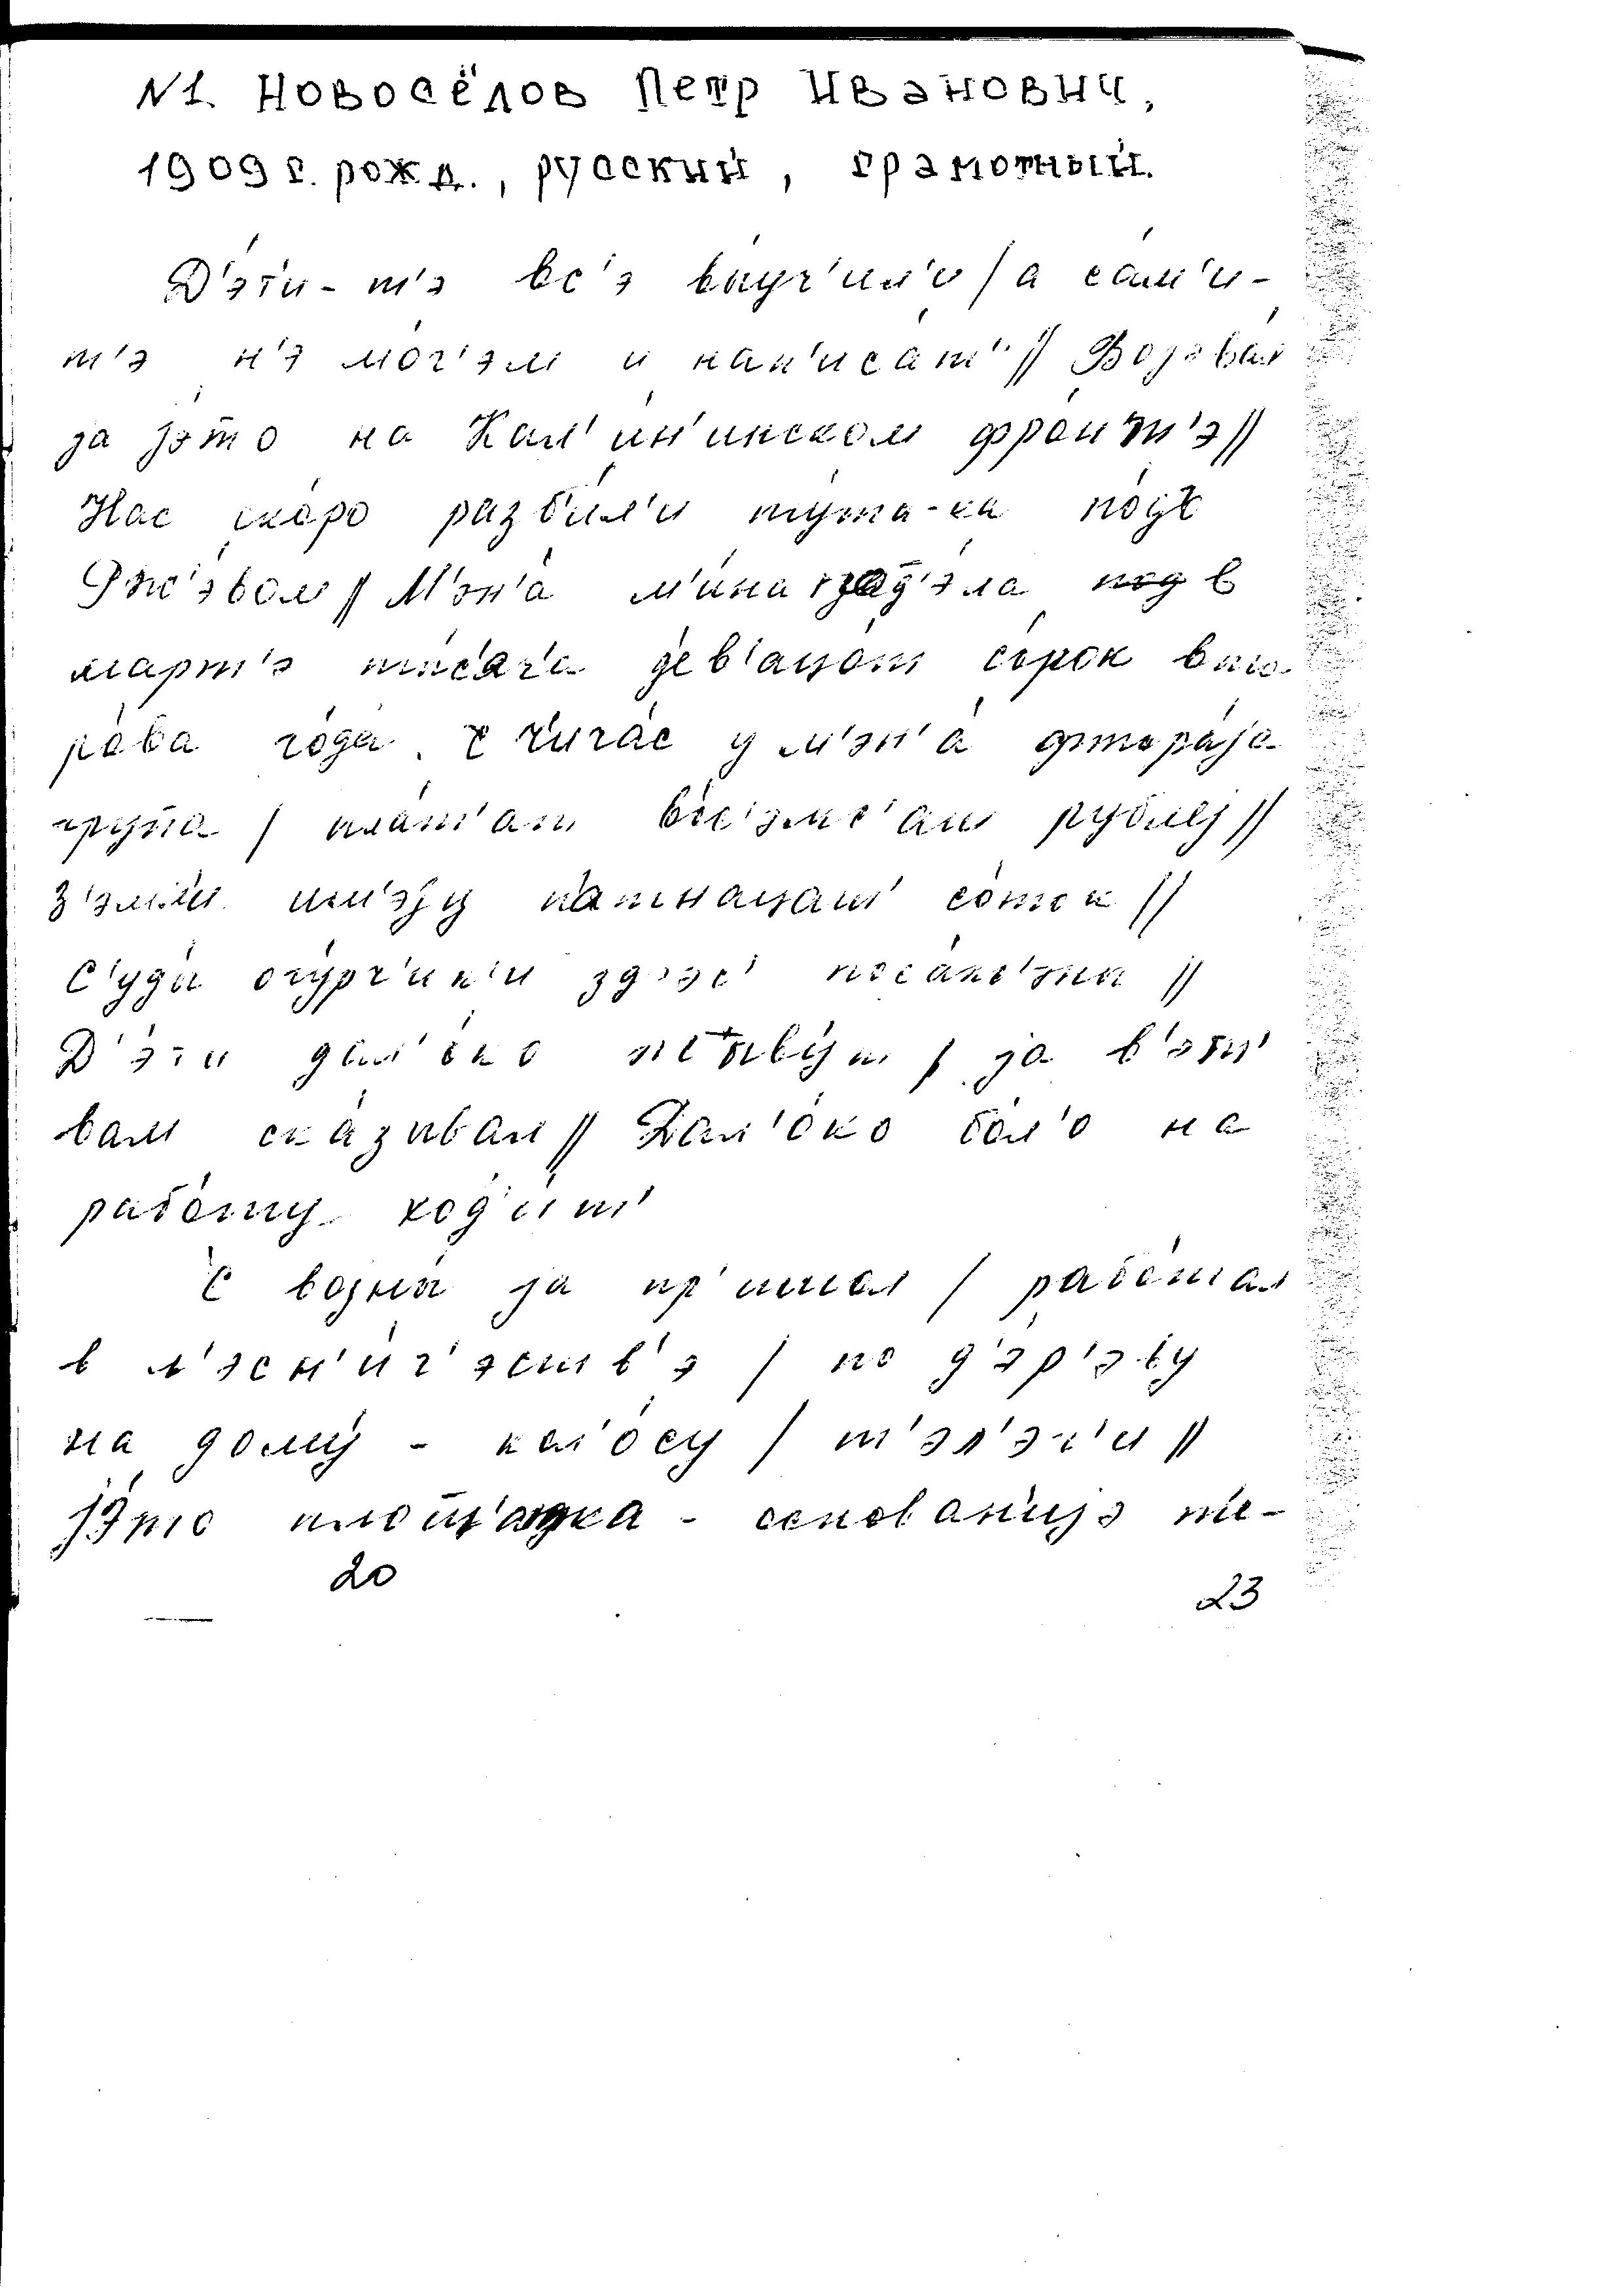 N1. Новосёлов Петр Иванович,
1909 г. рожд., русский, грамотный.
Д'э́ти-т'э вс'э вы́уч'ил'и / а са́м'и-
т'э н'э мо́г'эм и нап'иса́т' // Војева́л
ја јэ́то на Кал'и́н'инском фро́нт'э //
Нас ско́ро разби́л'и ту́та-ка по́дъ
Рж'э́вом // М'эн'а́ м'и́на зад'э́ла в
март'э ты́сяч'а дев'ацо́т со́рок вто-
ро́ва го́да. чича́с у м'эн'а́ фтора́јa
група / пла́т'ат во́с'эмс'ат рубле́ј //
З'эмли́ им'э́ју патнацат' со́ток //
С'уда́ огу́рч'ик'и зд'эс' поса́жены //
Д'э́ти дал'око живу́т / ја в'эт'
вам ска́зывал // Дал'о́ко бол'о на
рабо́ту ход'и́т'
С војны́ ја пр'ишол / рабо́тал
в л'эсн'и́ч'эств'э / по д'э́р'эву
на дому́ - кол'о́су / т'эл'э́г'и //
Јэ́то площ'адка - основан'ијэ те-
20
23